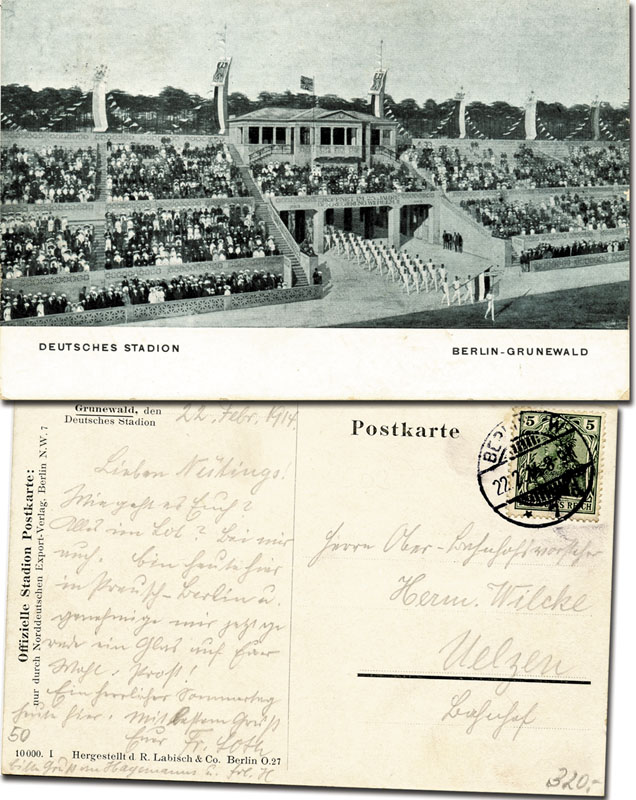 DEUTSCHES STADION
BERLIN-GRUNEWALD
Grunewald, den 22. Febr. 1914
Deutsches Stadion
Postkarte
5 5
BERLIN W.
22.2.14.
REICH
Offizielle Stadion Postkarte:
nur durch Norddeutschen Export-Verlag, Berlin N.W. 7
Lieben
Wie geht es Euch?
Alles im Lot? Bei mir
auch. Bin heute hier
in Preusch-Berlin u.
genehmige mir jetzt ge
rade ein Glas auf Euer
Wohl. Prost!
Ein herrlicher Sommertag
heute hier. Mit bestem Gruß
Euer Fr. Loth
50
10000. I Hergestellt d. R. Labisch & Co. Berlin O.27
Gruß an Hagemanns u. Frl. H
Herrn Ober-Bahnhofsvorsteher
Herm. Wilcke
Uelzen
Bahnhof
320,-